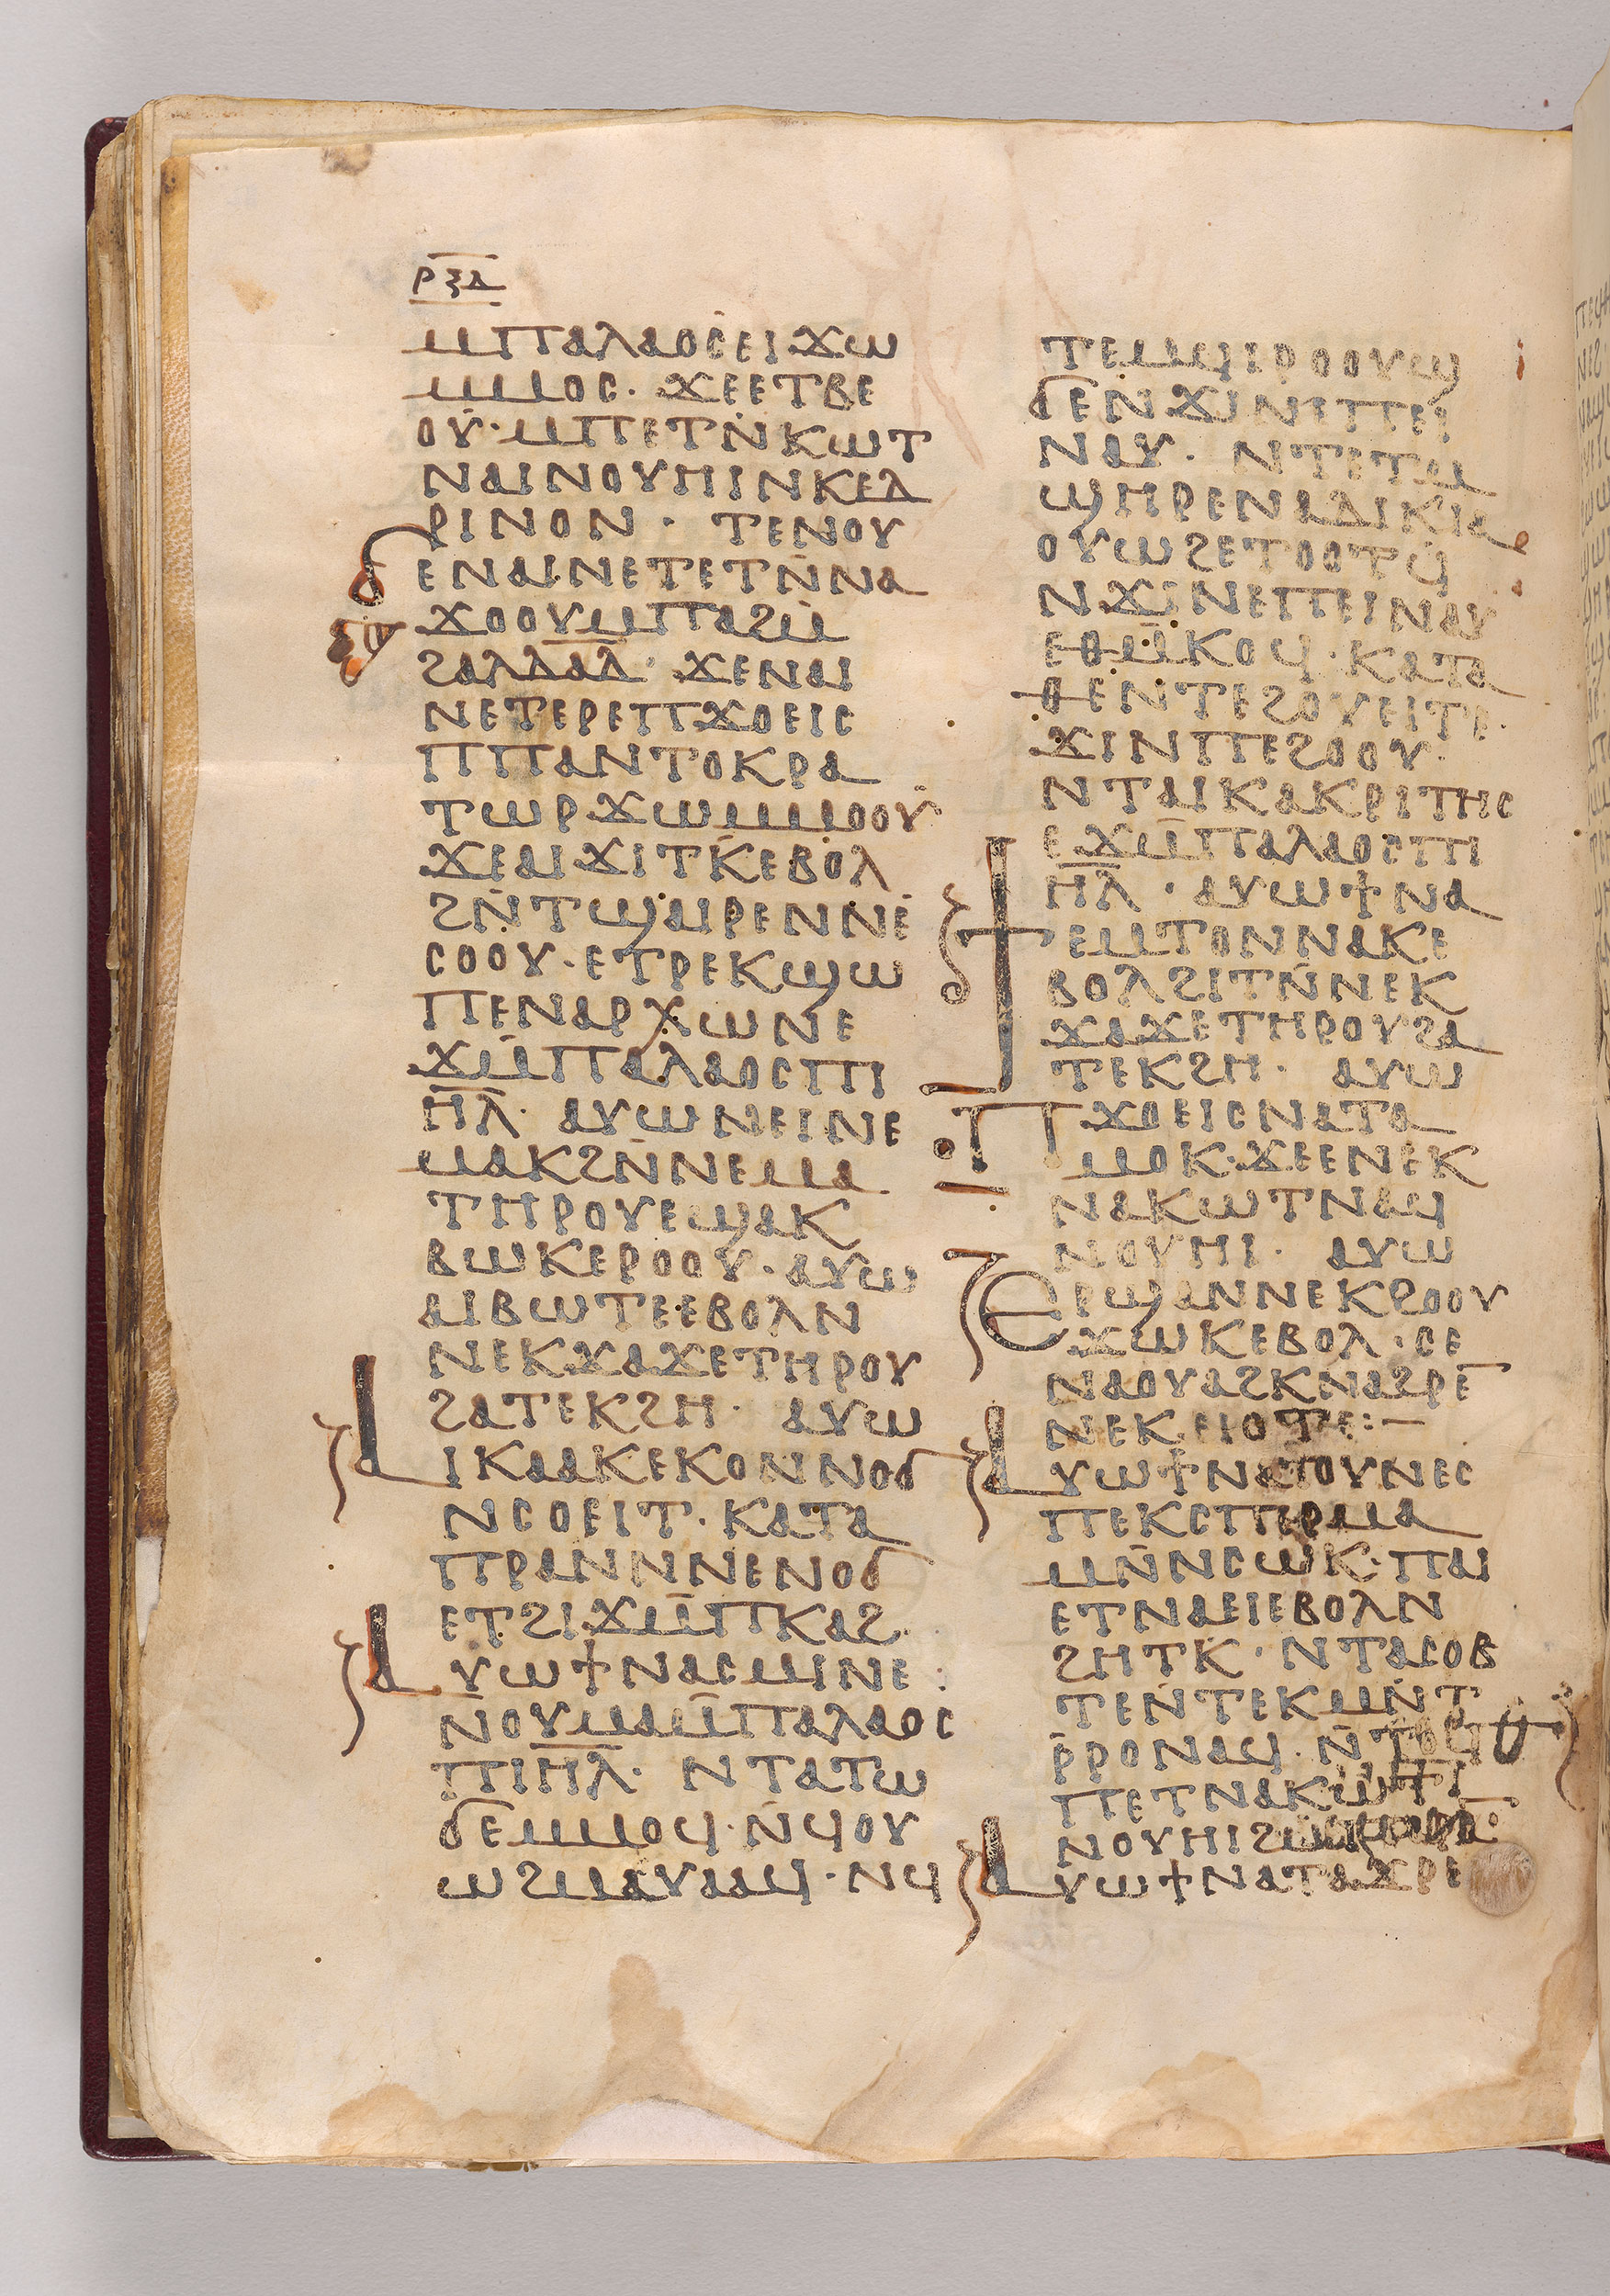 ⲣⲝⲇ
ⲙⲡⲁⲗⲁⲟⲥⲉⲓϫⲱ
ⲙⲙⲟⲥ· ϫⲉⲉⲧⲃⲉ
ⲟⲩ· ⲙⲡⲉⲧⲛ̄ⲕⲱⲧ
ⲛⲁⲓⲛⲟⲩⲏⲓⲛⲕⲉⲇ
ⲣⲓⲛⲟⲛ· ⲧⲉⲛⲟⲩ
ϭⲉⲛⲁⲓⲛⲉⲧⲉⲧⲛ̄ⲛⲁ
ϫⲟⲟⲩⲙⲡⲁϩⲙ̄
ϩⲁⲗⲇⲁ̄ⲇ̄· ϫⲉⲛⲁⲓ
ⲛⲉⲧⲉⲣⲉⲡϫⲟⲉⲓⲥ
ⲡⲡⲁⲛⲧⲟⲕⲣⲁ
ⲧⲱⲣϫⲱⲙⲙⲟⲟⲩ
ϫⲉⲁⲓϫⲓⲧⲕ̄ⲉⲃⲟⲗ
ϩⲛ̄ⲧϣⲁⲓⲣⲉⲛⲛⲉ
ⲥⲟⲟⲩ· ⲉⲧⲣⲉⲕϣⲱ
ⲡⲉⲛⲁⲣⲭⲱⲛⲉ
ϫⲙ̄ⲡⲁⲗⲁⲟⲥⲡⲓ
ⲏ̄ⲗ̄· ⲁⲩⲱⲛⲉⲓⲛⲉ
ⲙⲁⲕϩⲛ̄ⲛⲉⲙⲁ
ⲧⲏⲣⲟⲩⲉϣⲁⲕ
ⲃⲱⲕⲉⲣⲟⲟⲩ· ⲁⲩⲱ
ⲁⲓⲃⲱⲧⲉⲉⲃⲟⲗⲛ
ⲛⲉⲕϫⲁϫⲉⲧⲏⲣⲟⲩ
ϩⲁⲧⲉⲕϩⲏ· ⲁⲩⲱ
ⲁⲓⲕⲁⲁⲕⲉⲕⲟⲛⲛⲟϭ
ⲛⲥⲟⲉⲓⲧ· ⲕⲁⲧⲁ
ⲡⲣⲁⲛⲛⲛⲉⲛⲟϭ
ⲉⲧϩⲓϫⲙ̄ⲡⲕⲁϩ
ⲁⲩⲱϯⲛⲁⲥⲙⲓⲛⲉ
ⲛⲟⲩⲙⲁⲙ̄ⲡⲁⲗⲁⲟⲥ
ⲡⲓⲏ̄ⲗ̄· ⲛⲧⲁⲧⲱ
ϭⲉⲙⲙⲟϥ· ⲛ̄ϥⲟⲩ
ⲱϩⲙⲁⲩⲁⲁϥ· ⲛϥ
ⲧⲉⲙϥⲓⲣⲟⲟⲩϣ
ϭⲉⲛϫⲓⲛⲉⲡⲉⲓ
ⲛⲁⲩ· ⲛⲧⲉⲧⲙ
ϣⲏⲣⲉⲛⲁⲇⲓⲕⲓⲁ
ⲟⲩⲱϩⲉⲧⲟⲟⲧϥ
ⲛϫⲓⲛⲉⲡⲉⲓⲛⲁⲩ
ⲉⲑⲙ̄ⲕⲟϥ· ⲕⲁⲧⲁ
ⲑⲉⲛⲧⲉϩⲟⲩⲉⲓⲧⲉ·
ϫⲓⲛⲡⲉϩⲟⲟⲩ·
ⲛⲧⲁⲓⲕⲁⲕⲣⲓⲧⲏⲥ
ⲉϫⲙ̄ⲡⲁⲗⲁⲟⲥⲡⲓ
ⲏ̄ⲗ̄· ⲁⲩⲱϯⲛⲁ
ϯⲉⲙⲧⲟⲛⲛⲁⲕⲉ
ⲃⲟⲗϩⲓⲧⲛ̄ⲛⲉⲕ
ϫⲁϫⲉⲧⲏⲣⲟⲩϩⲁ
ⲧⲉⲕϩⲏ· ⲁⲩⲱ
ⲡϫⲟⲉⲓⲥⲛⲁⲧⲁ
ⲙⲟⲕ· ϫⲉⲉⲛⲉⲕ
ⲛⲁⲕⲱⲧⲛⲁϥ
ⲛⲟⲩⲏⲓ· ⲁⲩⲱ
ⲉⲣϣⲁⲛⲛⲉⲕϩⲟⲟⲩ
ϫⲱⲕⲉⲃⲟⲗ· ⲥⲉ
ⲛⲁⲟⲩⲁϩⲕⲛⲁϩⲣⲉ
ⲛⲉⲕⲉⲓⲟⲧⲉ:–
ⲁⲩⲱϯⲛⲁⲧⲟⲩⲛⲉⲥ
ⲡⲉⲕⲥⲡⲉⲣⲙⲁ
ⲙⲛ̄ⲛⲥⲱⲕ· ⲡⲁⲓ
ⲉⲧⲛⲁⲉⲓⲉⲃⲟⲗⲛ
ϩⲏⲧⲕ̄· ⲛⲧⲁⲥⲟⲃ
ⲧⲉⲛ̄ⲧⲉⲕⲙⲛ̄ⲧ
ⲣ̄ⲣⲟⲛⲁϥ· ⲛ̄ⲧⲟϥ
ⲡⲉⲧⲛⲁⲕⲱⲧ
ⲛⲟⲩⲏⲓ
ⲁⲩⲱϯⲛⲁⲧⲁϫⲣⲉ